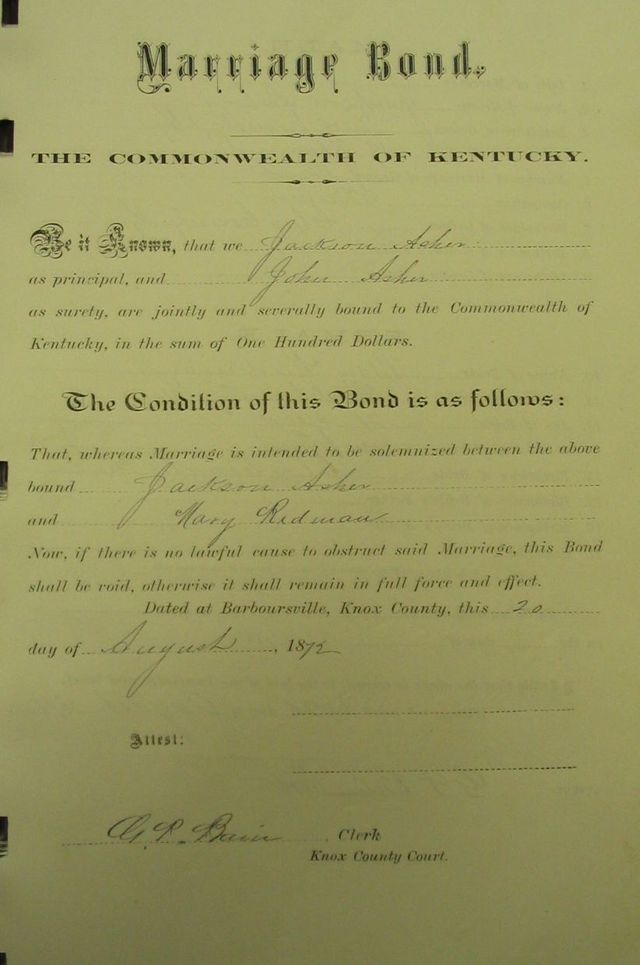 Marriage Bond.
THE COMMONWEALTH OF KENTUCKY.
Be it Known, that we Jackson Asher
as principal, and John Asher
as surety, are jointly and severally bound to the Commonwealth of
Kentucky, in the sum of One Hundred Dollars.
The Condition of this Bond is as follows:
That, whereas Marriage is intended to be solemnized between the above
bound Jackson Asher
and Mary Redman
Now, if there is no lawful cause to obstruct said Marriage, this Bond
shall be void, otherwise it shall remain in full force and effect.
Dated at Barboursville, Knox County, this 20
day of August, 1872
Attest:
G. P. Bain, Clerk
Knox County Court.